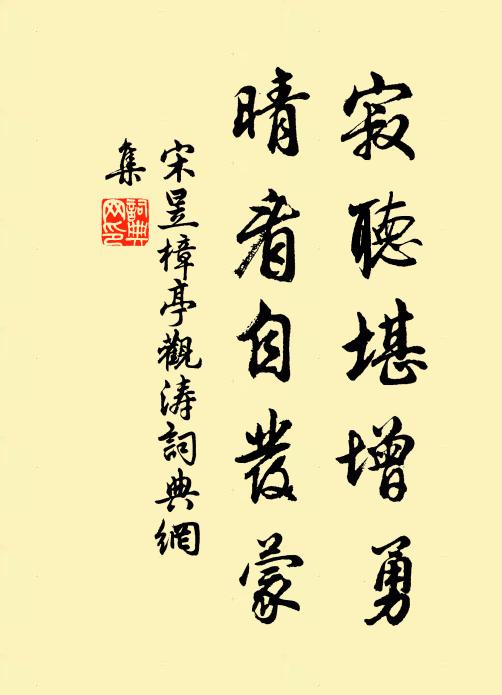 寂聽堪增勇
晴看自發蒙
宋昱樟亭觀濤詞典網
集
詞典
网印